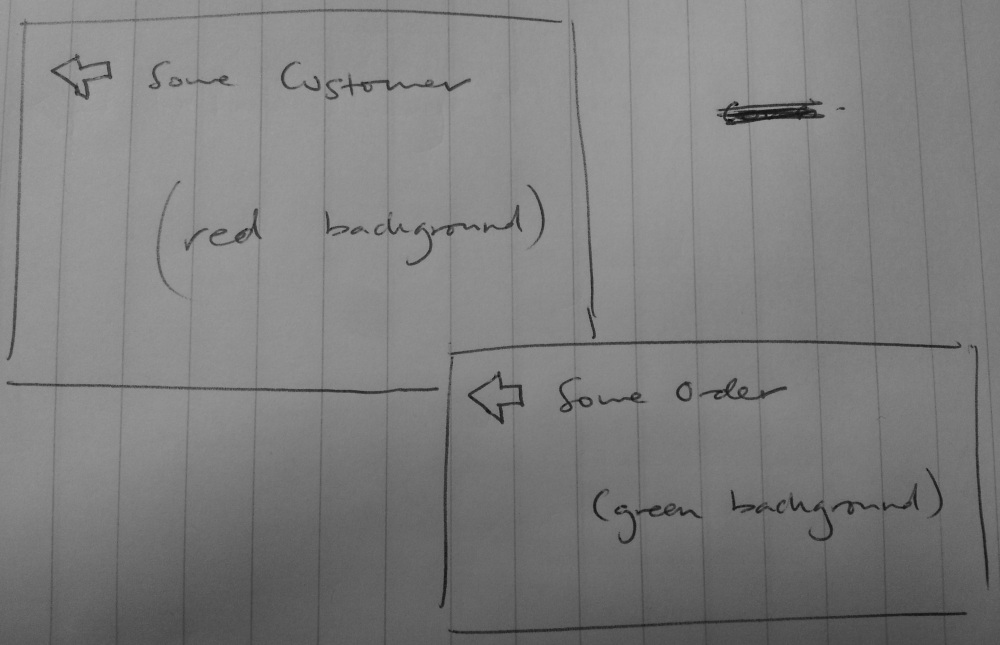 Some Customer
(red background)
Some Order
(green background)